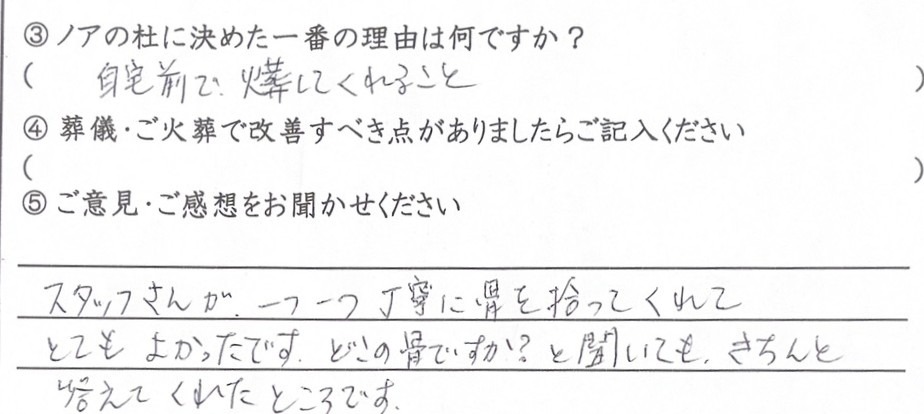 ③ノアの杜に決めた一番の理由は何ですか？
( 自宅前で、火葬してくれること )
④葬儀・ご火葬で改善すべき点がありましたらご記入ください
( )
⑤ご意見・ご感想をお聞かせください
スタッフさんが、一つ一つ丁寧に骨を拾ってくれて
とてもよかったです。どこの骨ですか？と聞いても、きちんと
答えてくれたところです。